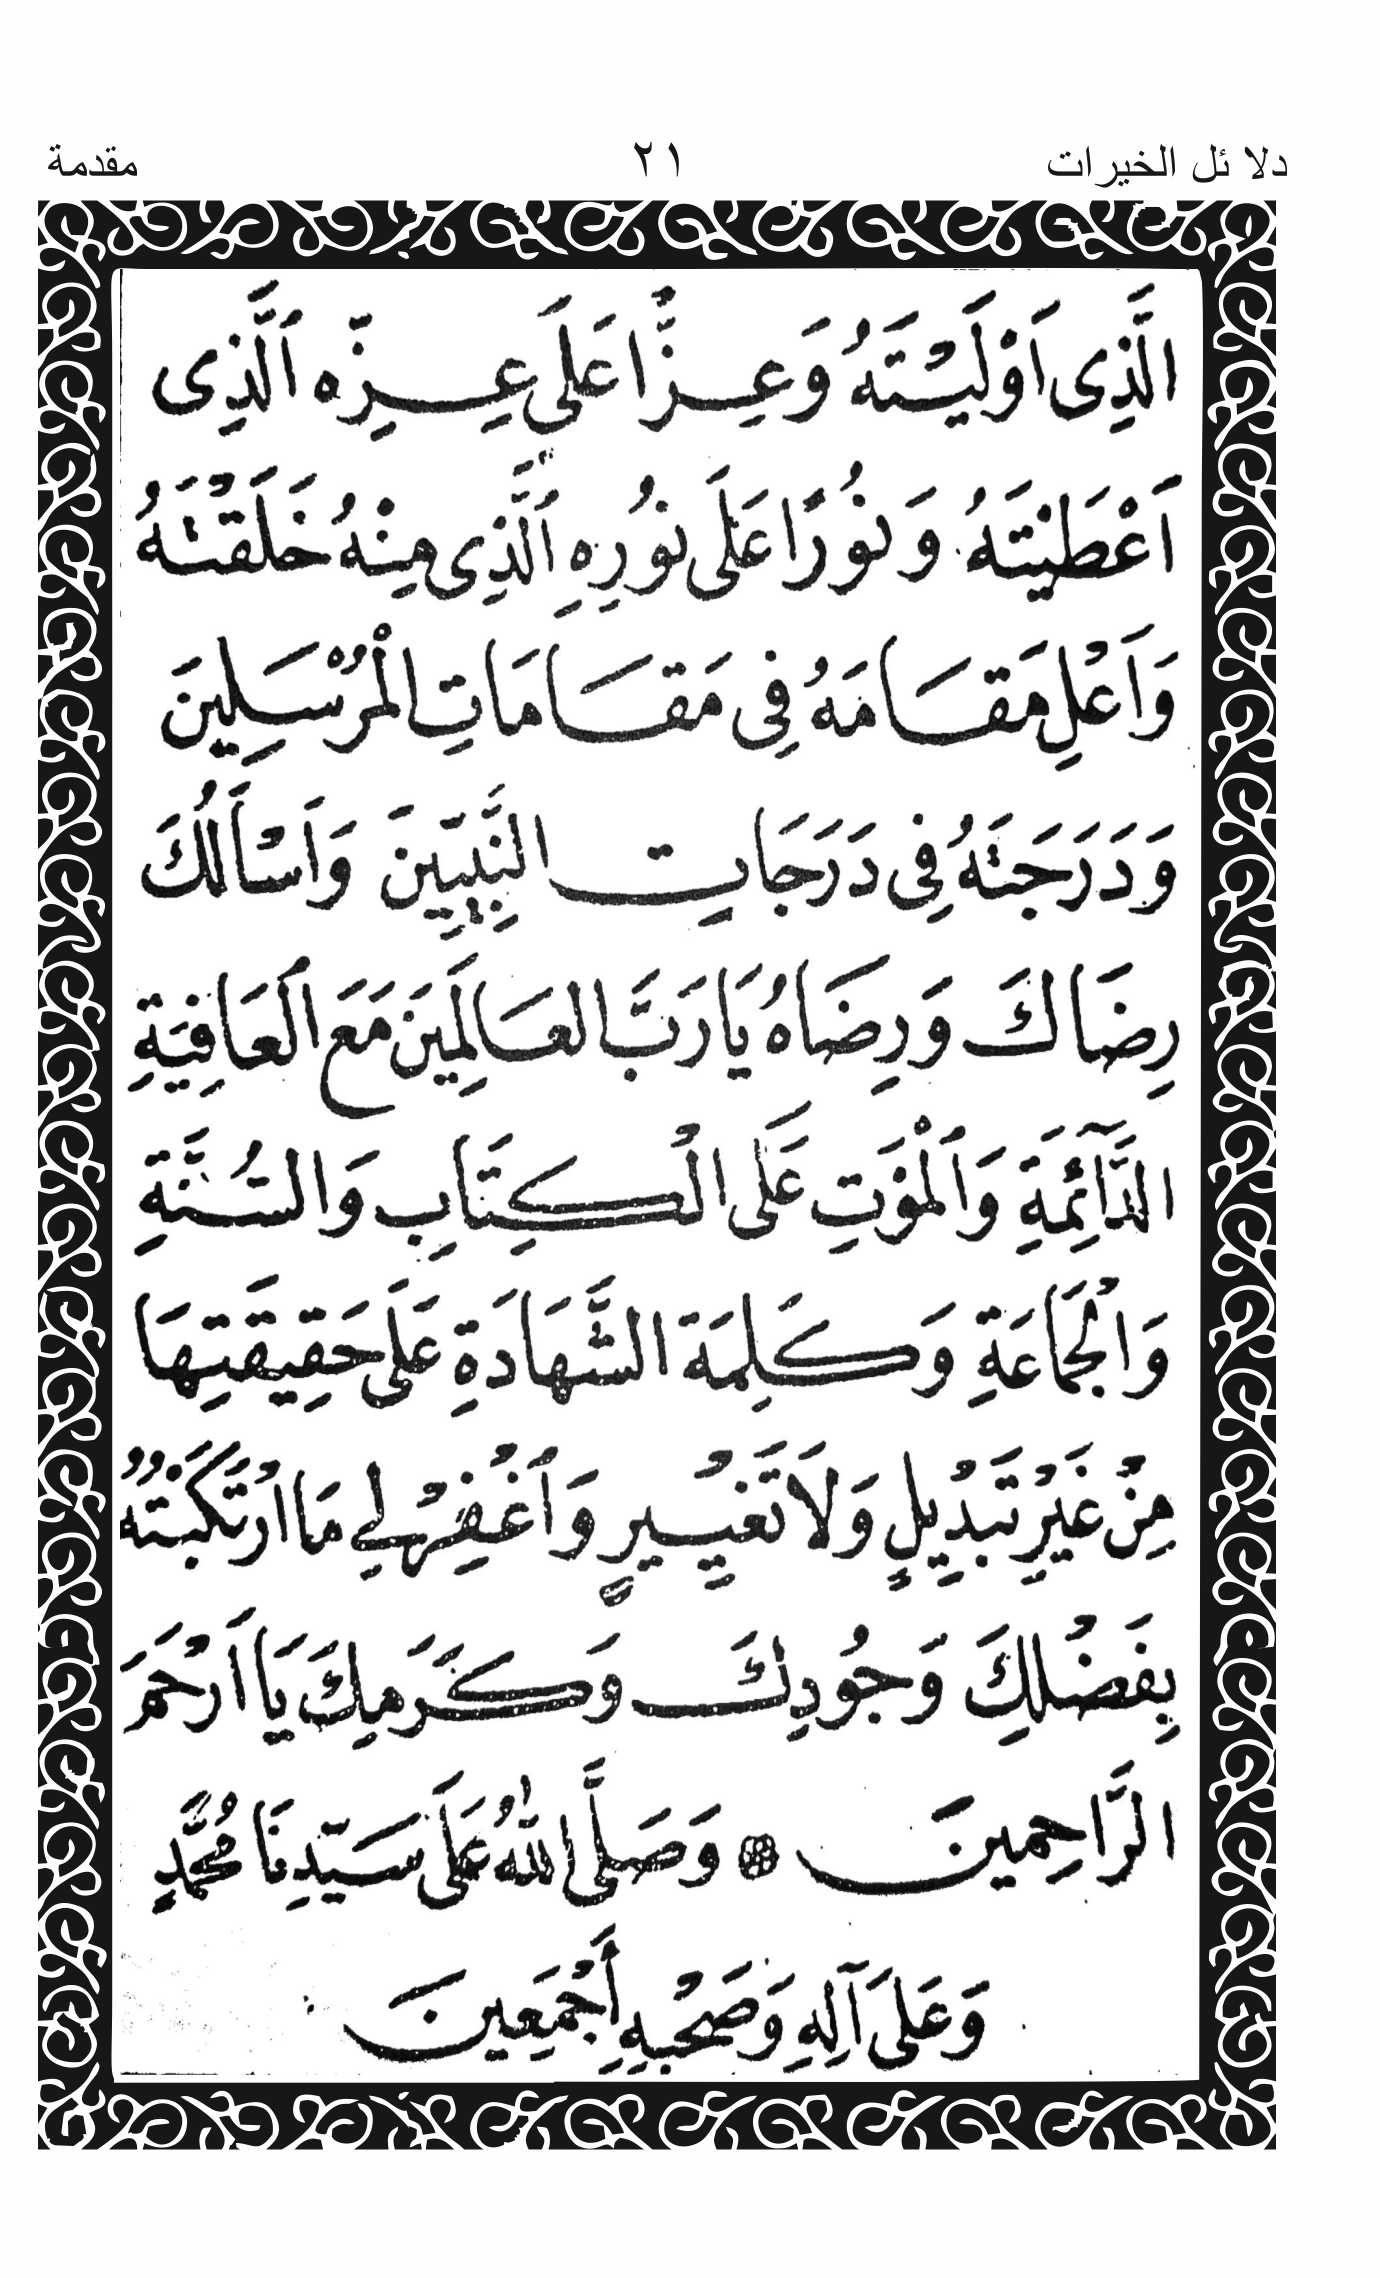 دلا ئل الخيرات ٢١ مقدمة
الَّذِى اَوْلَيْتَهُ وَعِزًّا عَلَى عِزِّهِ اَلَّذِى
اَعْطَيْتَهُ وَنُورًا عَلَى نُورِهِ اَلَّذِى مِنْهُ خَلَقْتَهُ
وَاَعْلِ مَقَامَهُ فِى مَقَامَاتِ الْمُرْسَلِينَ
وَدَرَجَتَهُ فِى دَرَجَاتِ النَّبِيِّينَ وَاَسْأَلُكَ
رِضَاكَ وَرِضَاهُ يَا رَبَّ العَالَمِينَ مَعَ الْعَافِيَةِ
الدَّآئِمَةِ وَاَلْمَوْتِ عَلَى الْكِتَابِ وَالسُّنَّةِ
وَالْجَمَاعَةِ وَكَلِمَةِ الشَّهَادَةِ عَلَى حَقِيقَتِهَا
مِنْ غَيْرِ تَبْدِيْلٍ وَلَا تَغْيِيرٍ وَاَغْفِرْ لِي مَا ارْتَكَبْتُهُ
بِفَضْلِكَ وَجُودِكَ وَكَرَمِكَ يَا اَرْحَمَ
الرَّاحِمِينَ ۞ وَصَلَّى اللهُ عَلَى سَيِّدِنَا مُحَمَّدٍ
وَعَلَى آلِهِ وَصَحْبِهِ أَجْمَعِينَ